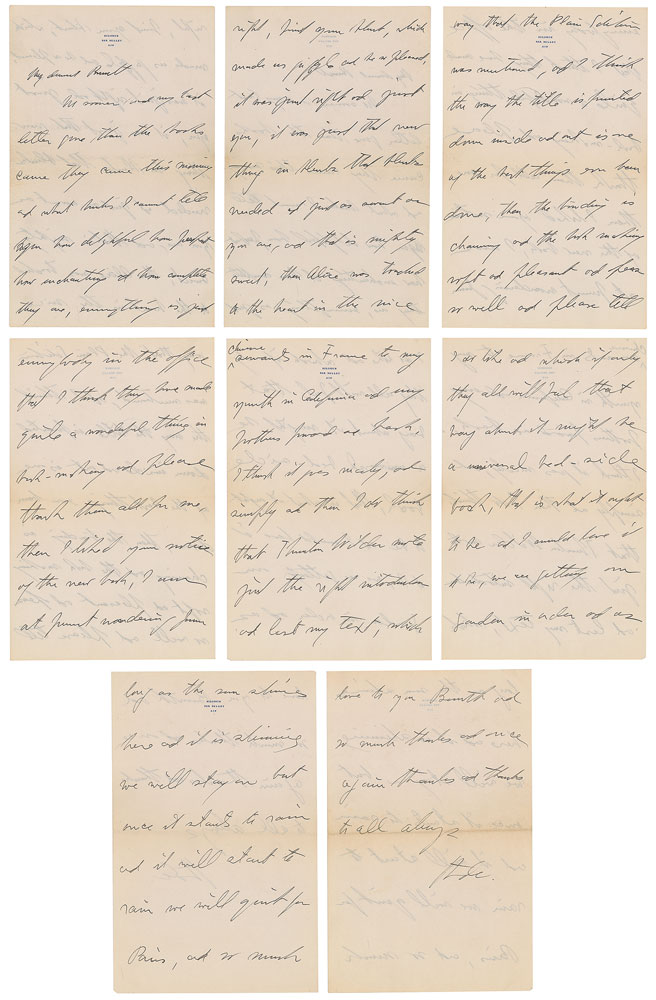 BILIGNIN
PAR BELLEY
AIN
My dearest Bennett
No sooner had my last
letter gone, than the books
came they came this morning
and what books I cannot tell
you how delightful how perfect
how enchanting and how complete
they are, everything is just
right, first your blurb, which
made us giggle and be so pleased,
it was just right and just
you, it was just that new
thing in blurbs that blurbs
needed and just as sweet as
you are, and that is mighty
sweet, then Alice was touched
to the heart in the nice
way that the Plain Edition
was mentioned, and I think
the way the title is printed
down inside and out is one
of the best things ever been
done, then the binding is
charming and the book making
soft and pleasant and please
so well and please tell
everybody in the office
that I think they have made
quite a wonderful thing in
book-making and please
thank them all for me,
then I liked your notice
of the new book, I am
at present wandering from
chinese
servants in France to my
youth in California and my
brothers and back,
I think it goes nicely, and
simply and then I do think
that Thornton Wilder wrote
just the right introduction
and last my text, which
I do like and which if only
they all will feel that
way about it might be
a universal bed-side
book, that is what it ought
to be and I would love it
to be, we are getting our
garden in order and as
long as the sun shines
BILIGNIN
PAR BELLEY
AIN
here and it is shining
we will stay on but
once it starts to rain
and it will start to
rain we will quit for
Paris, and so much
love to you Bennett and
so much thanks and once
again thanks and thanks
to all always
Gtde.